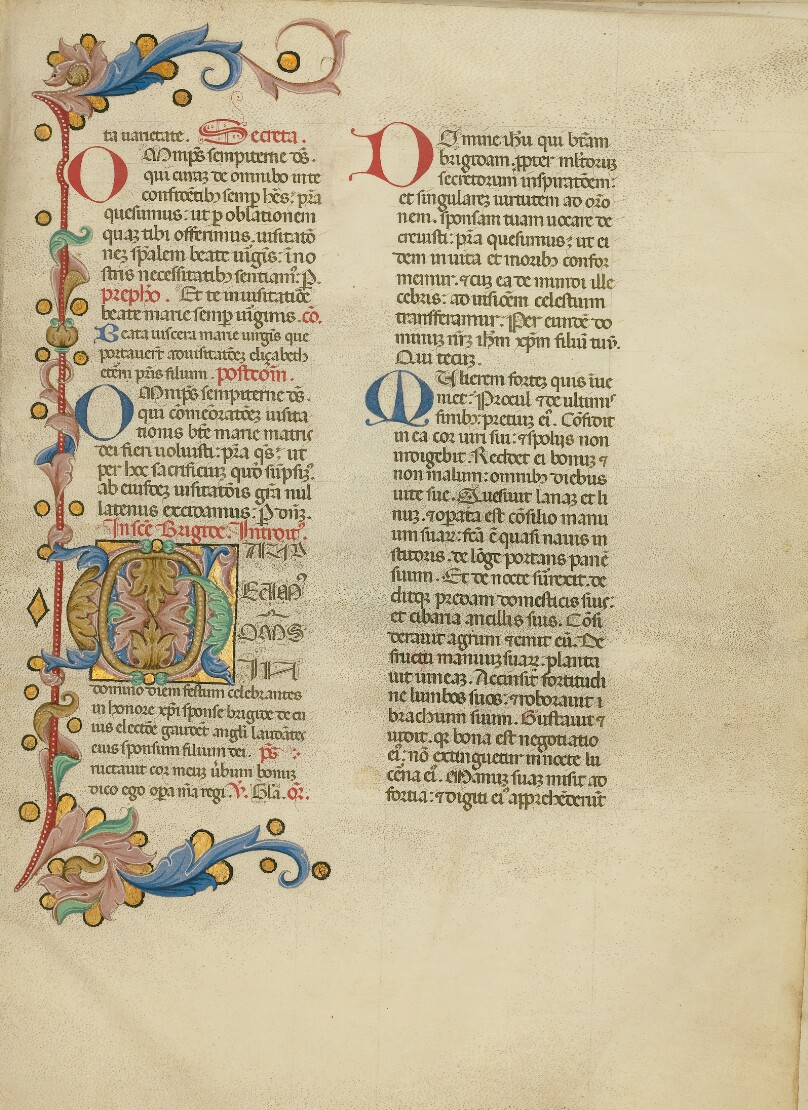 ta uarietate. Secreta.
Omnip̄s sempiterne ds̄.
qui cunꝫ de omnibꝰ in te
confitētibꝫ semꝑ hēs: p̄ra
quesumus: ut ꝑ oblationem
quaꝫ tibi offerimus. uisitatō
neꝫ sp̄alem beate uirgīs: ī no
stris necessitatibꝫ sentiam᷒. P.
prepħo. Et te in uisitatiōe
beate marie semꝑ uirginis. cō.
Beata uiscera marie uirgīs que
portauerūt ad uisitatōeꝫ elizabeth
etēni pr̄is filium. postcōin.
Omnip̄s sempiterne ds̄.
qui cōmēoratōeꝫ uisita
tionis bt̄e marie matris
dei fieri uoluisti: p̄ra qs̄: ut
per hoc sacrificiuꝫ quod sūpsīꝰ.
ab eiusdeꝫ uisitatōis grā nul
latenus excidamus: P dn̄ꝫ.
In fēsto Brigide. Introit᷒.
GAVD
EAM᷒
OM̄S
IN
domino diem festum celebrantes
in honore xp̄i sponse brigide de cu
ius electōe gaudēt angli laudātes
eius sponsum filium dei. p̄s
ructauit cor meuꝫ ūbum bonuꝫ
dico ego opa m̄a regi. V. Gl̄a. Or̄.
Domine ih̄u qui bt̄am
brigidam. ꝓpter mltoruꝫ
secretorum inspiratōem:
et singulareꝫ uirtutem ad orō
nem. sponsam tuam uocare de
creuisti: p̄ra quesumus: ut ei᷒
dem in uita et moribꝫ confor
memur. ⁊ cuꝫ ea de mundi ille
cebris: ad uisōem celestium
transferamur. Per eundē do
minuꝫ nr̄ꝫ ih̄m xp̄m filiū tuū.
Qui tecuꝫ.
Mulierem forteꝫ quis īue
niet: Procul ⁊ de ultimis
finibꝫ: pretiuꝫ ei᷒. Cōfidit
in ea cor uiri sui: ⁊ spoliis non
indigebit. Reddet ei bonuꝫ ⁊
non malum: omnibꝫ diebus
uite sue. Quesiuit lanaꝫ et li
nuꝫ. ⁊ opata est cōsilio manu
um suaꝝ: fc̄a ē quasi nauis in
stitoris. de lōge portans panē
suum. Et de nocte surrexit. de
ditqꝫ predam domesticis suis:
et cibaria ancillis suis. Cōsi
derauit agrum ⁊ emit eū. De
fructu manuuꝫ suaꝝ. planta
uit uineaꝫ. Accinsit fortitudi
ne lumbos suos: ⁊ roborauit ⁊
brachium suum. Gustauit ⁊
uidit. qꝛ bona est negotiatio
ei᷒: nō extinguetur in nocte lu
cerna ei᷒. Manuꝫ suaꝫ misit ad
fortia: ⁊ digiti ei᷒ apprehēderūt